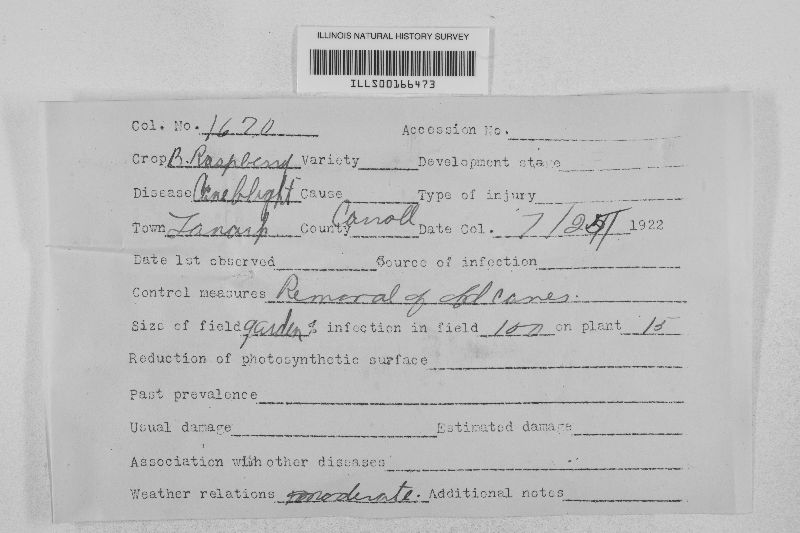 ILLINOIS NATURAL HISTORY SURVEY
ILLS00166473
Col. No. 1670 Accession No.
Crop B. Raspberry Variety Development stage
Disease Cane blight Cause Type of injury
Town Lanark County Carroll Date Col. 7/2 1922
Date 1st observed Source of infection
Control measures Removal of old canes.
Size of field garden % infection in field 100 on plant 15
Reduction of photosynthetic surface
Past prevalence
Usual damage Estimated damage
Association with other diseases
Weather relations moderate. Additional notes